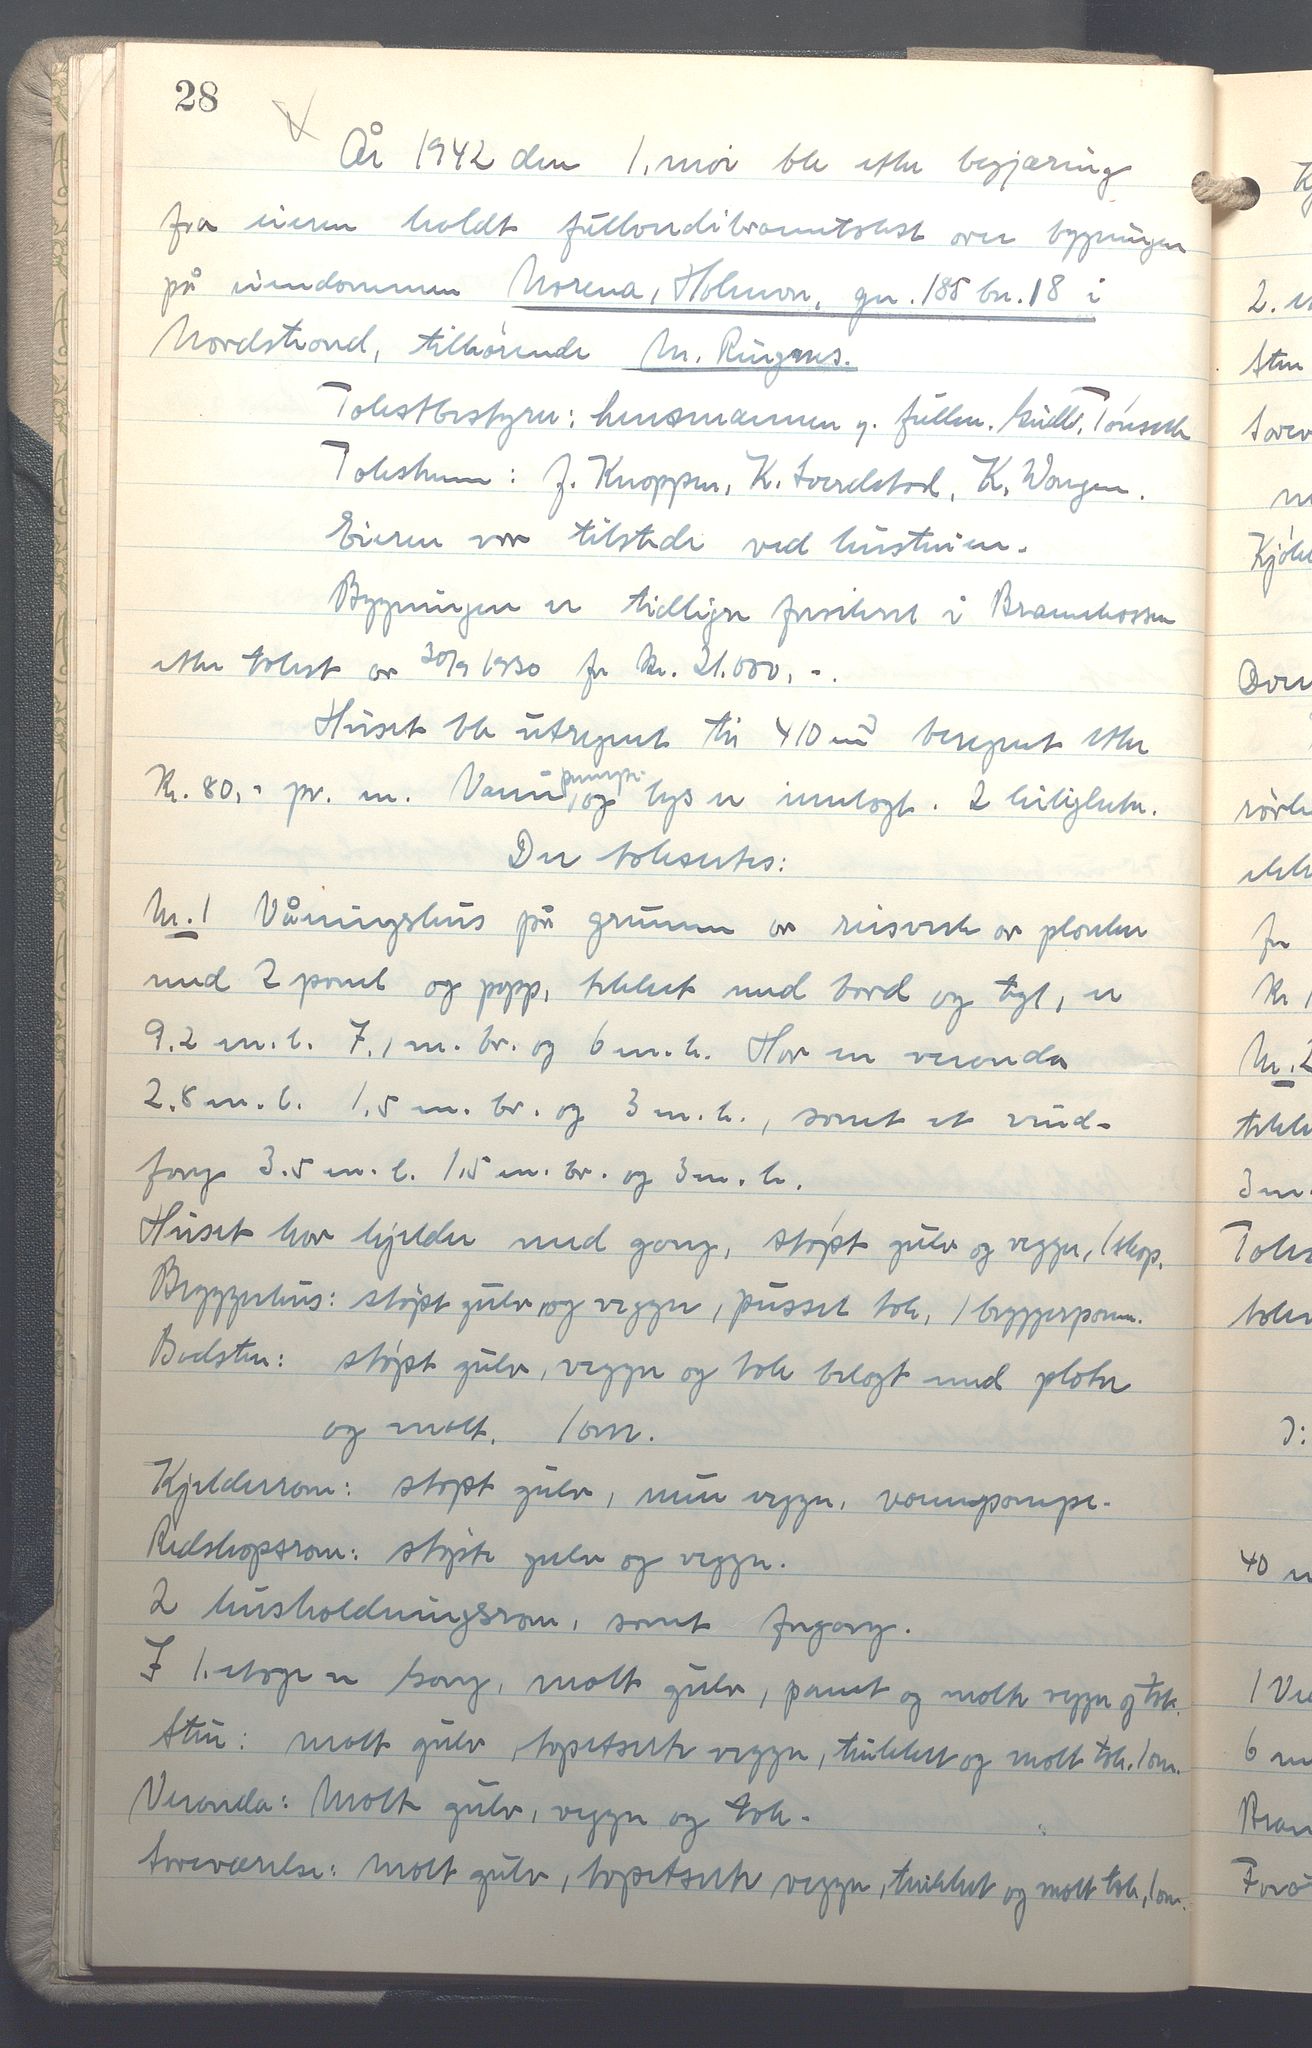 28
År 1942 den 1. mai ble efter begjæring
fra eieren holdt full branntakst over bygningen
på eiendommen Morena, Holmen, gn. 185 bn. 18 i
Nordstrand, tilhørende M. Ringnes.
Takstbestyrer: lensmannen v. fullm.
Takstmenn: J. Knoppen, K. Sverdstad, K. Wangen.
Eieren var tilstede ved hustruen.
Bygningen er tidligere forsikret i Brannkassen
efter takst av 30/9 1930 for kr. 21.000,-.
Huset ble utregnet til 410 m³ beregnet efter
Kr. 80,- pr. m. Vann, pumpe og lys er innlagt. 2 leiligheter.
Der taksertes:
Nr. 1 Våningshus på grunnm. av reisverk av planker
med 2 panel og papp, tekket med bord og tegl, er
9.2 m. l. 7.1 m. br. og 6 m. h. Har en veranda
2.8 m. l. 1.5 m. br. og 3 m. h., samt et vind-
fang 3.5 m. l. 1.5 m. br. og 3 m. h.
Huset har kjelder med gang, støpt gulv og vegger, 1 skap.
Bryggerhus: støpt gulv og vegger, pusset tak, 1 bryggerpanne.
Badstu: støpt gulv, vegger og tak belagt med plater
og malt. 1 ovn.
Kjelderrom: støpt gulv, mur vegger, vannpumpe.
Redskapsrom: støpte gulv og vegger.
2 husholdningsrom, samt frgang.
I 1. etage er Gang, malt gulv, panel og malte vegger og tak.
Stue: malt gulv, tapetserte vegger, trukket og malt tak. 1 ovn.
Veranda: Malt gulv, vegger og tak.
Soveværelse: malt gulv, tapetserte vegger, trukket og malt tak, 1 ovn.